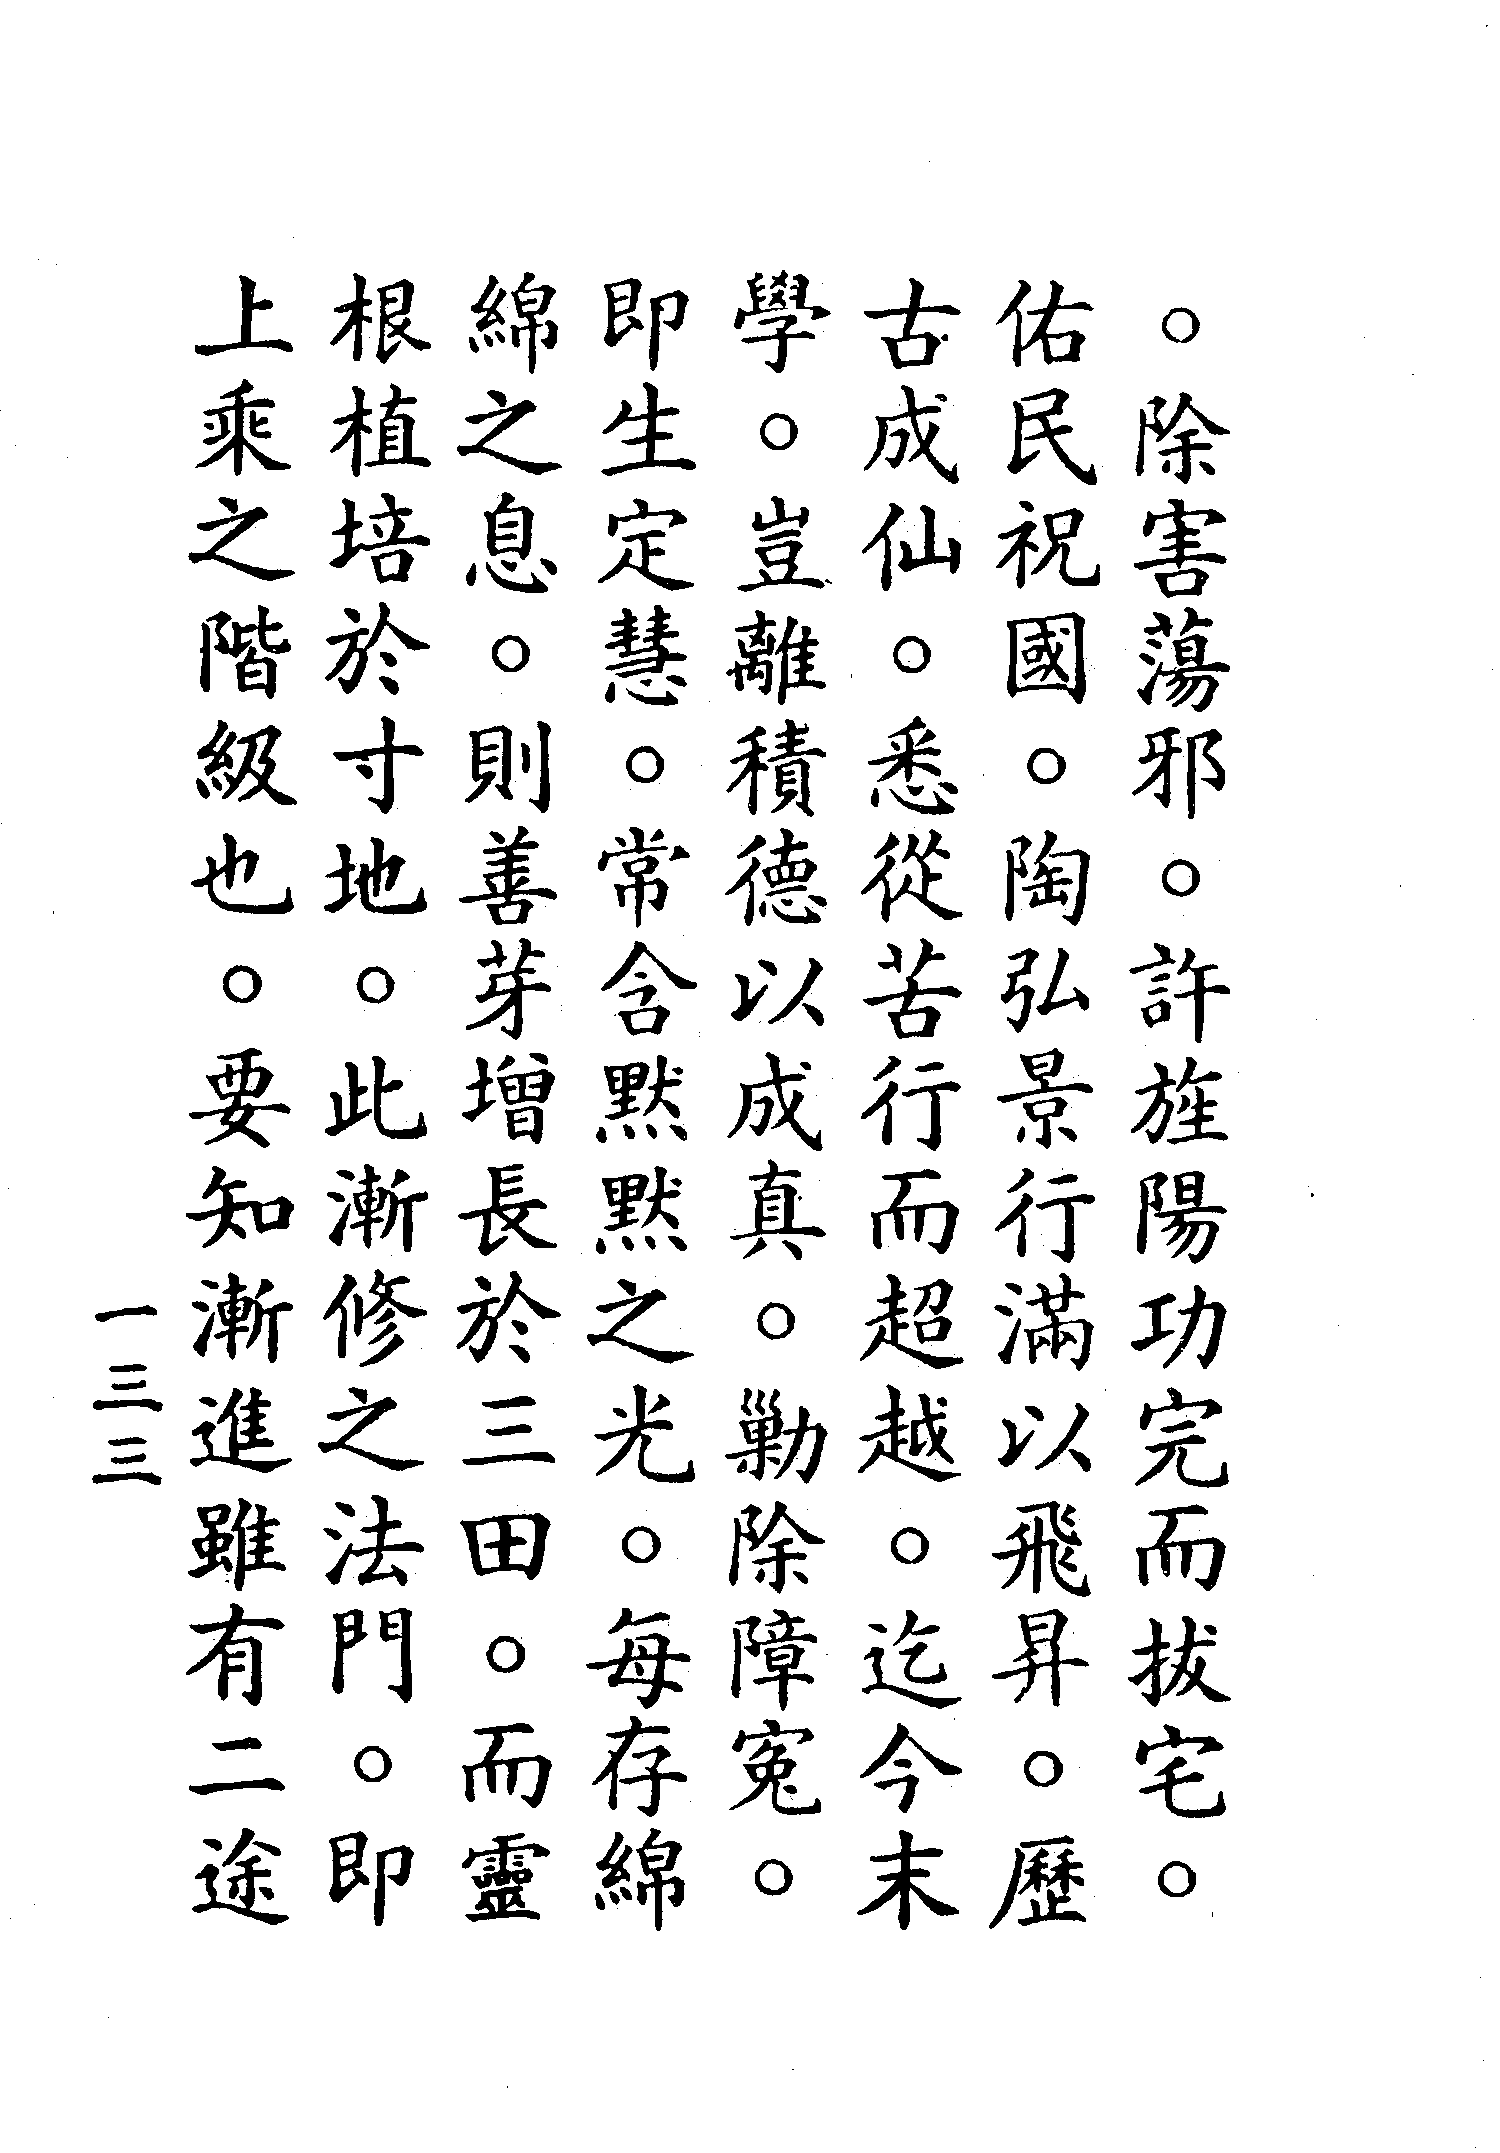 。除害蕩邪。許旌陽功完而拔宅。
佑民祝國。陶弘景行滿以飛昇。歷
古成仙。悉從苦行而超越。迄今末
學。豈離積德以成真。勦除障寃。
即生定慧。常含默默之光。每存綿
綿之息。則善芽增長於三田。而靈
根植培於寸地。此漸修之法門。即
上乘之階級也。要知漸進雖有二途
一三三